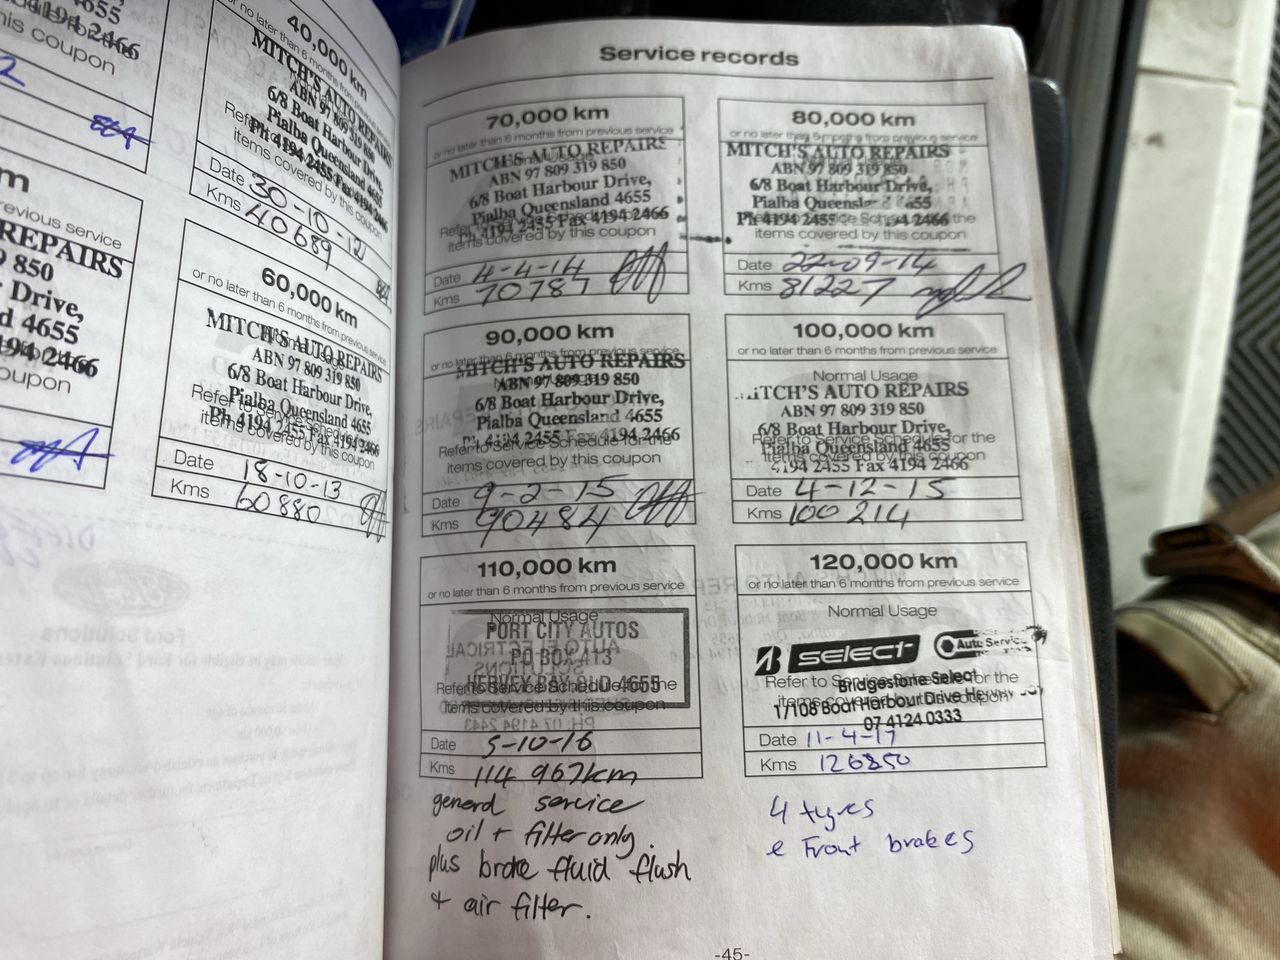 4655
4194 2466
this coupon
2
m
previous service
REPAIRS
9 850
Drive,
d 4655
194 2466
oupon
40,000 km
or no later than 6 months from previous service
MITCH'S AUTO REPAIRS
ABN 97 809 319 850
6/8 Boat Harbour Drive,
Pialba Queensland 4655
Ph 4194 2455 Fax 4194 2466
items covered by this coupon
Date 30-10-12
Kms 40689
60,000 km
or no later than 6 months from previous service
MITCH'S AUTO REPAIRS
ABN 97 809 319 850
6/8 Boat Harbour Drive,
Pialba Queensland 4655
Refer to Service Schedule for the
Ph 4194 2455 Fax 4194 2466
items covered by this coupon
Date 18-10-13
Kms 60880
Service records
70,000 km
or no later than 6 months from previous service
Normal Usage
MITCH'S AUTO REPAIRS
ABN 97 809 319 850
6/8 Boat Harbour Drive,
Pialba Queensland 4655
Refer to Service Schedule for the
Ph 4194 2455 Fax 4194 2466
items covered by this coupon
Date 4-4-14
Kms 70787
80,000 km
or no later than 6 months from previous service
MITCH'S AUTO REPAIRS
ABN 97 809 319 850
6/8 Boat Harbour Drive,
Pialba Queensland 4655
Ph 4194 2455 Fax 4194 2466
Refer to Service Schedule for the
items covered by this coupon
Date 22-09-14
Kms 81227
90,000 km
or no later than 6 months from previous service
MITCH'S AUTO REPAIRS
ABN 97 809 319 850
6/8 Boat Harbour Drive,
Pialba Queensland 4655
Ph 4194 2455 Fax 4194 2466
Refer to Service Schedule for the
items covered by this coupon
Date 9-2-15
Kms 90484
100,000 km
or no later than 6 months from previous service
Normal Usage
MITCH'S AUTO REPAIRS
ABN 97 809 319 850
6/8 Boat Harbour Drive,
Refer to Service Schedule for the
Pialba Queensland 4655
items covered by this coupon
4194 2455 Fax 4194 2466
Date 4-12-15
Kms 100214
110,000 km
or no later than 6 months from previous service
Normal Usage
PORT CITY AUTOS
PO BOX 413
HERVEY BAY QLD 4655
Refer to Service Schedule for the
items covered by this coupon
Date 5-10-16
Kms 114 967km
general service
oil + filter only.
plus brake fluid flush
+ air filter.
120,000 km
or no later than 6 months from previous service
Normal Usage
B SELECT Auto Service
Refer to Service Schedule for the
Bridgestone Select
items covered by this coupon
1/108 Boat Harbour Drive Hervey Bay
07 4124 0333
Date 11-4-17
Kms 126850
4 tyres
e Front brakes
-45-